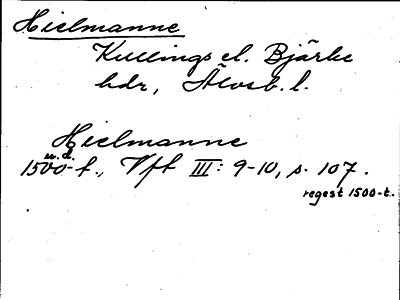 Hielmanne
Kullings el. Bjärke
hdr, Älvsb. l.
Hielmanne
u. d.
1500-t., Vft III: 9-10, s. 107.
regest 1500-t.